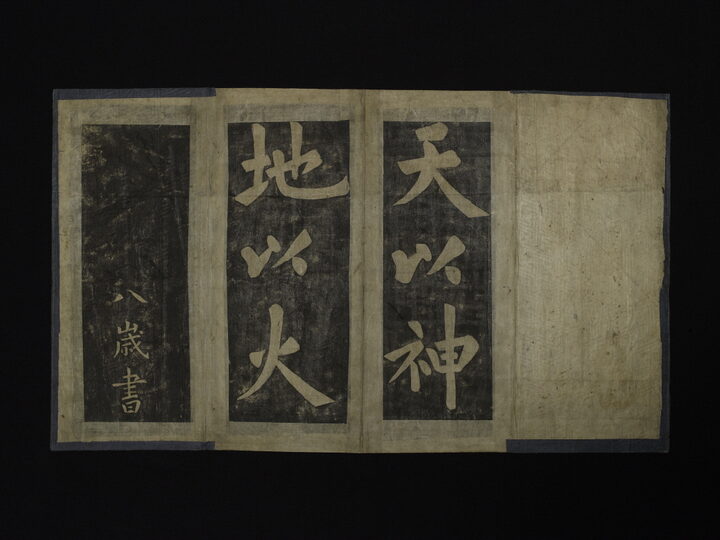 天以神
地以火
八歲書